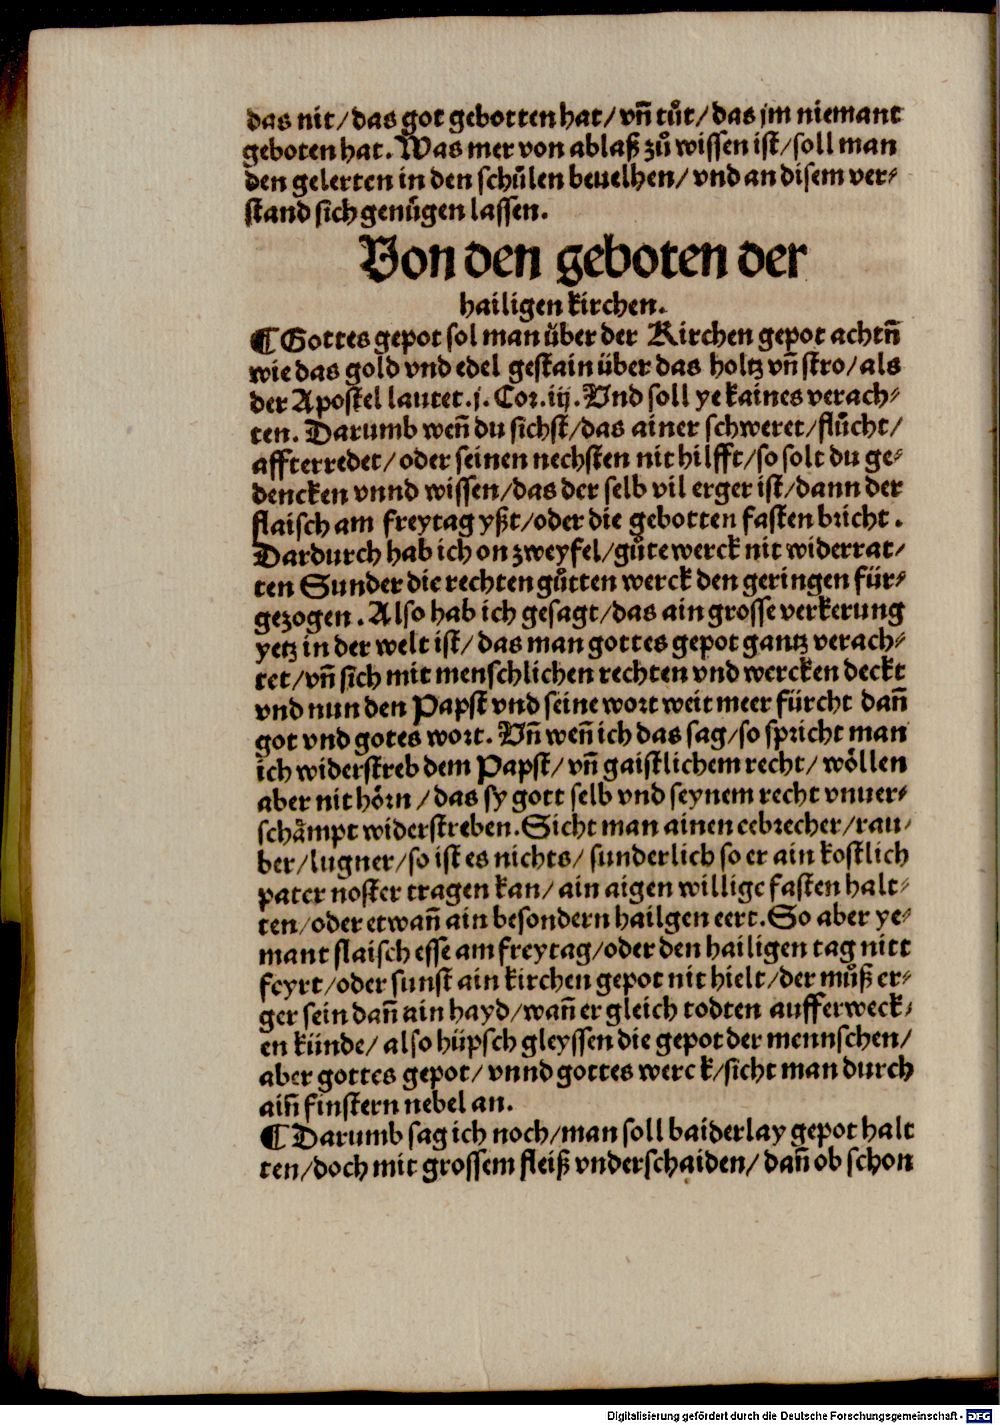 das nit/das got gebotten hat/vn̄ tůt/das jm niemant
geboten hat. Was mer von ablaß zů wissen ist/soll man
den gelerten in den schůlen beuelhen/vnd an disem ver⸗
stand sich genůgen lassen.
Von den geboten der
hailigen kirchen.
¶ Gottes gepot sol man über der Kirchen gepot achtn̄
wie das gold vnd edel gestain über das holtz vn̄ stro/als
der Apostel lautet.j. Cor.iij. Vnd soll ye kaines verach⸗
ten. Darumb wen̄ du sichst/das ainer schweret/flůcht/
affterredet/oder seinen nechsten nit hilfft/so solt du ge⸗
dencken vnnd wissen/das der selb vil erger ist/dann der
flaisch am freytag yßt/oder die gebotten fasten bricht.
Dardurch hab ich on zweyfel/gůte werck nit widerrat⸗
ten Sunder die rechten gůtten werck den geringen für⸗
gezogen. Also hab ich gesagt/das ain grosse verkerung
yetz in der welt ist/das man gottes gepot gantz verach⸗
tet/vn̄ sich mit menschlichen rechten vnd wercken deckt
vnd nun den Papst vnd seine wort weit meer fürcht dan̄
got vnd gotes wort. Vn̄ wen̄ ich das sag/so spricht man
ich widerstreb dem Papst/vn̄ gaistlichem recht/wöllen
aber nit hörn/das sy gott selb vnd seynem recht vnuer⸗
schåmpt widerstreben. Sicht man ainen eebrecher/rau⸗
ber/lugner/so ist es nichts/sunderlich so er ain kostlich
pater noster tragen kan/ain aigen willige fasten halt⸗
ten/oder etwan̄ ain besondern hailgen eert. So aber ye⸗
mant flaisch esse am freytag/oder den hailigen tag nitt
feyrt/oder sunst ain kirchen gepot nit hielt/der můß er⸗
ger sein dan̄ ain hayd/wan̄ er gleich todten aufferweck⸗
en künde/also hüpsch gleyssen die gepot der mennschen/
aber gottes gepot/vnnd gottes werck/sicht man durch
ain̄ finstern nebel an.
¶ Darumb sag ich noch/man soll baiderlay gepot halt
ten/doch mit grossem fleiß vnderschaiden/dan̄ ob schon
Digitalisierung gefördert durch die Deutsche Forschungsgemeinschaft - DFG